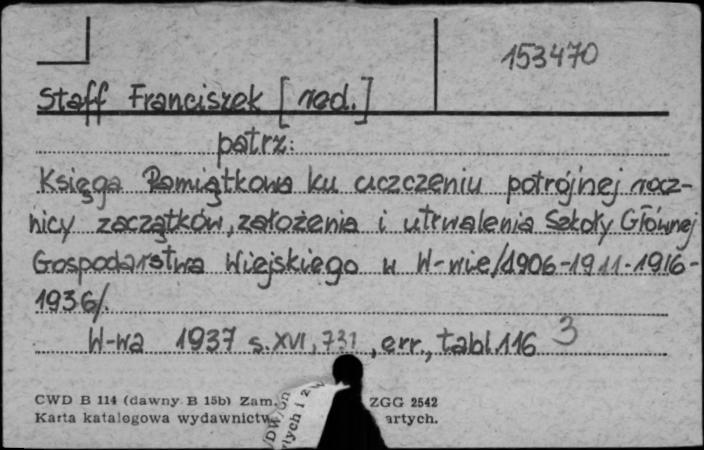 153470
Staff Franciszek [red.]
patrz:
Księga Pamiątkowa ku uczczeniu potrójnej rocz-
nicy zaczątków, założenia i utrwalenia Szkoły Głównej
Gospodarstwa Wiejskiego w W-wie/1906-1911-1916-
1936/.
W-wa 1937 s. XVI, 731, err., tabl. 116 3
CWD B 114 (dawny B 15b) Zam. ZGG 2542
Karta katalogowa wydawnictw artych.